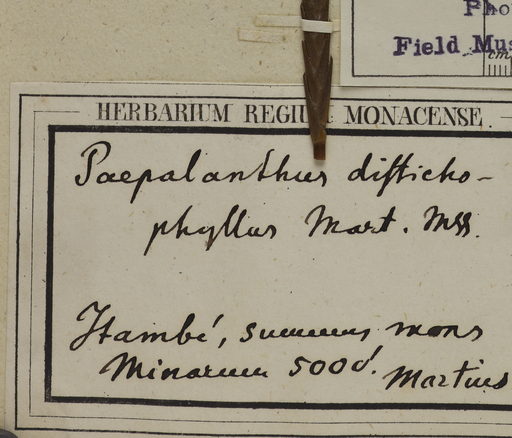 Pho
Field Mus
cm
HERBARIUM REGIUM MONACENSE.
Paepalanthus disticho-
phyllus Mart. Mss.
Itambé, summus mons
Minarum 5000'.
Martius